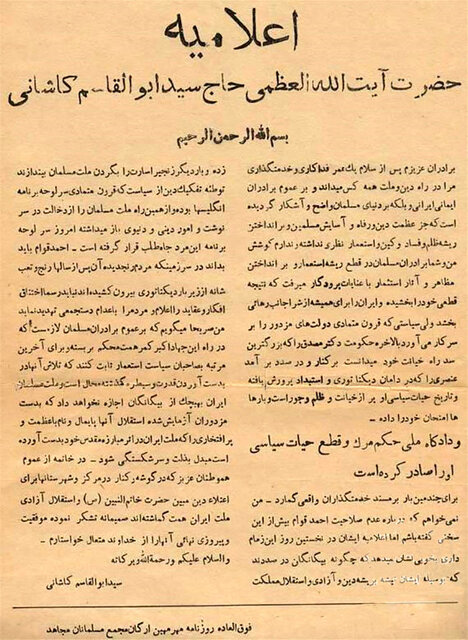 اعلامیه
حضرت آیت الله العظمی حاج سید ابوالقاسم کاشانی
بسم الله الرحمن الرحیم
برادران عزیزم پس از سلام یك عمر فداکاری و خدمتگذاری
مرا در راه دین و ملت همه کس میداند و بر عموم برادران
ایمانی ایرانی و بلکه بر دنیای مسلمان واضح و آشکار گردیده
است که جز عظمت دین و رفاه و آسایش مسلمین و بر انداختن
ریشه ظلم و فساد و کین و استعمار نظری نداشته و ندارم کوشش
من و شما برادران مسلمان در قطع ریشه استعمار و بر انداختن
مظاهر و آثار استثمار با عنایات پروردگار میرفت که نتیجه
قطعی خود را بخشیده و ایران را برای همیشه از شر اجانب رهائی
بخشد ولی سیاستی که قرون متمادی دولت های مزدور را بر
سر کار می آورد بالاخره حکومت دکتر مصدق را که بزرگترین
سد راه خیانت خود میدانست بر کنار و در صدد بر آمد
عنصری را که در دامان دیکتا توری و استبداد پرورش یافته
و تاریخ حیات سیاسی او پر از خیانت و ظلم و جور است و بارها
ها امتحان خود را داده
و دادگاه ملی حکم مرك و قطع حیات سیاسی
او را صادر کرده است
برای چندمین بار بر مسند خدمتگذاران واقعی گمارد - من
نمی‌خواهم که درباره عدم صلاحیت احمد قوام بیش از این
سخنی گفته باشم اما اعلامیه ایشان در نخستین روز این زمام
داری بخوبی نشان میدهد که چگونه بیگانگان در صددند
که بوسیله ایشان تیشه بریشه دین و آزادی و استقلال مملکت
زده و بار دیگر زنجیر اسارت را بگردن ملت مسلمان بیندازند
توطئه تفکیك دین از سیاست که قرون متمادی سر لوحه برنامه
انگلیسها بوده و از همین راه ملت مسلمان را از دخالت در سر
نوشت و امور دینی و دنیوی باز میداشته امروز سر لوحه
برنامه این مرد جاه طلب قرار گرفته است - احمد قوام باید
بداند در سرزمینی که مردم رنجدیده آن پس از سالها رنج و تعب
شانه از زیر بار دیکتاتوری بیرون کشیده‌اند نباید رسما اختناق
افکار و عقاید را اعلام و مردم را باعدام دستجمعی تهدید نماید
من صریحا میگویم که بر عموم برادران مسلمان لازمست که
در راه این جهاد اکبر کمر همت محکم بر بسته و برای آخرین
مرتبه بصاحبان سیاست استعمار ثابت کنند که تلاش آنها در
بدست آوردن قدرت و سیطره گذشته محال است و ملت مسلمان
ایران بهیچيك از بیگانگان اجازه نخواهد داد که بدست
مزدوران آزمایش شده استقلال آنها پایمال و نام باعظمت و
پر افتخاری را که ملت ایران در اثر مبارزه مقدس خود بدست آورده
است مبدل بذلت و سرشکستگی شود - در خاتمه از عموم
هموطنان عزیز که در گوشه و کنار در مرکز و شهرستانها برای
اعتلاء دین مبین حضرت خاتم النبین (ص) و استقلال آزادی
ملت ایران همت گماشته‌اند صمیمانه تشکر نموده موفقیت
و پیروزی نهائی آنها را از خداوند متعال خواستارم -
والسلام علیکم و رحمة الله و برکاته
سید ابوالقاسم کاشانی
فوق العاده روزنامه مهر میهن ارگان مجمع مسلمانان مجاهد